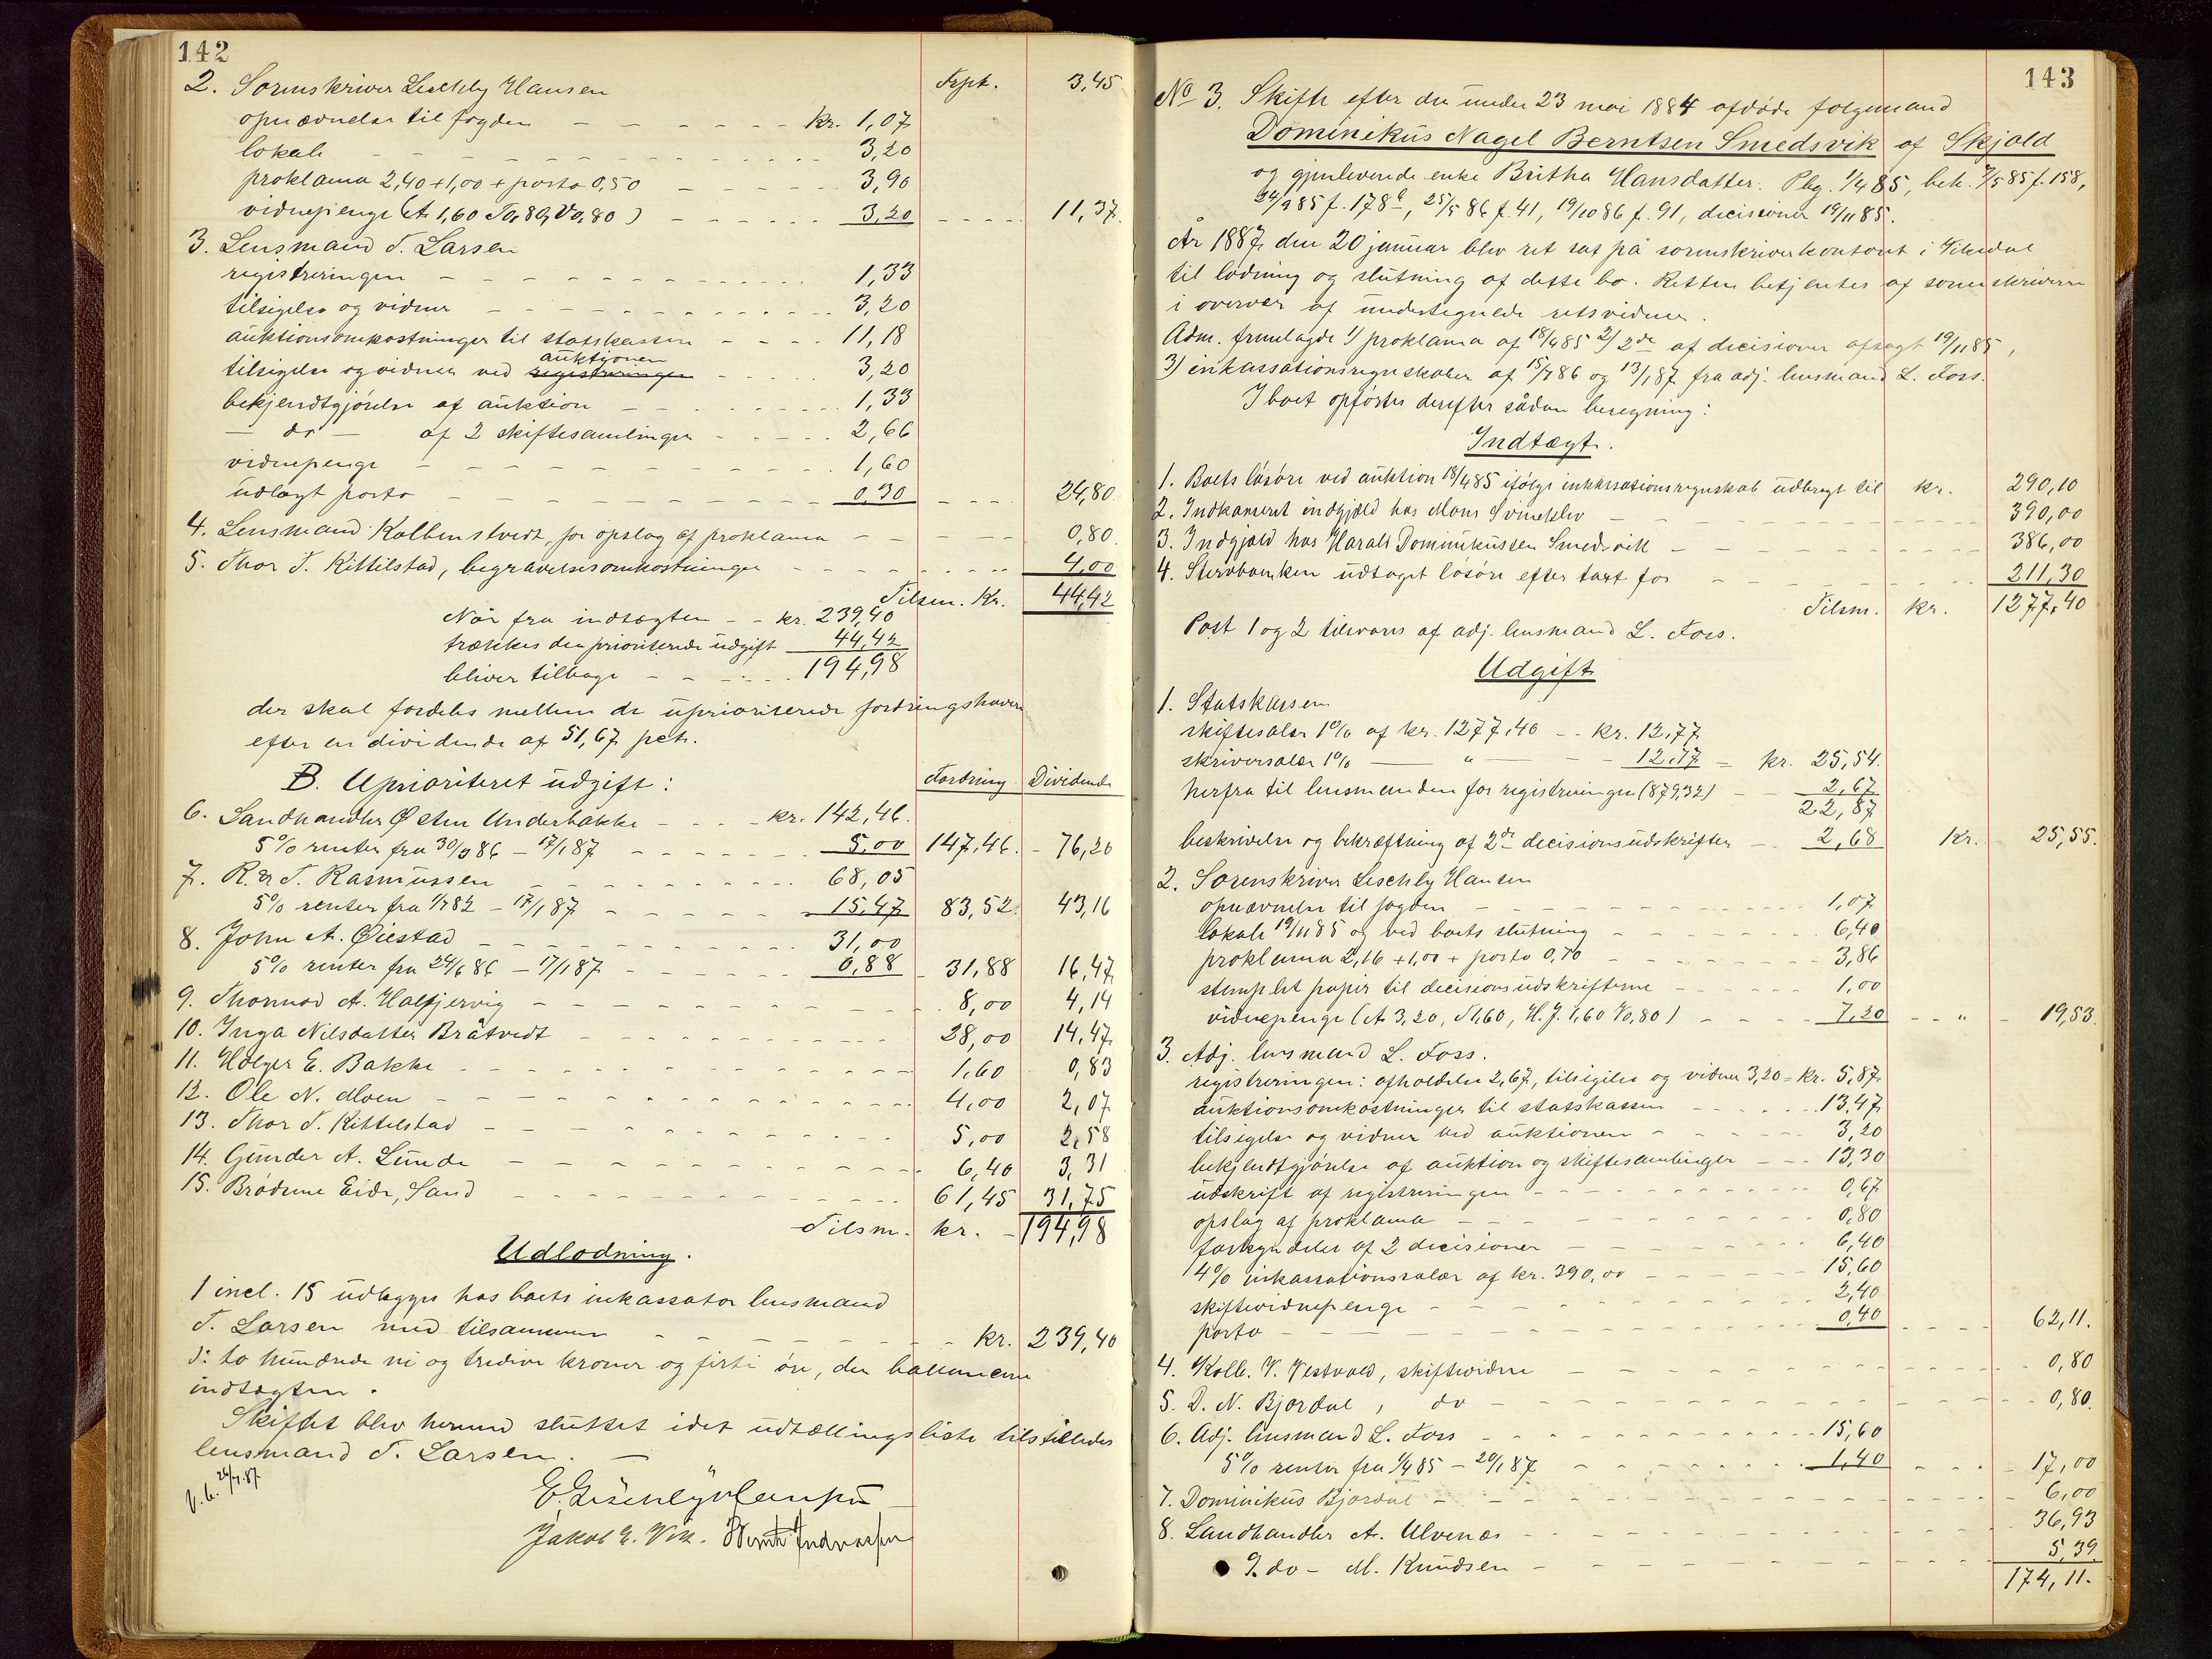 142
2. Sorenskriver Leschly Hansen Trpt. 3,45
opnævnelse til fogden - - - - - kr. 1,07
lokale - - - - - 3,20
proklama 2,40 + 1,00 + porto 0,50 - - - - 3,90
vidnepenge (A 1,60 T 0,80, V 0,80) - - - - 3,20 - - - - 11,37.
3. Lensmand T. Larsen
registreringen - - - - - 1,33
tilsigelse og vidner - - - - - 3,20
auktionsomkostninger til statskassen - - - - 11,18
auktionen
tilsigelse og vidner ved registreringen - - - - 3,20
bekjendtgjørelse af auktion - - - - - 1,33
— do — af 2 skiftesamlinger - - - - - 2,66
vidnepenge - - - - - 1,60
udlagt porto - - - - - 0,30 - - - 24,80
4. Lensmand Kolbenstvedt, for opslag af proklama - - - - 0,80.
5. Thor T. Kittilstad, begravelsesomkostninger - - - - 4,00
Tilsm. Kr. 44,42
Når fra indtægten - - kr. 239,40
trækkes den prioriterede udgift 44,42
bliver tilbage - - - - - 194,98
der skal fordeles mellem de uprioriterede fordringshavere
efter en dividende af 51,67 pct.
B. Uprioriteret udgift: Fordring Dividende
6. Landhandler Østen Underbakke - - - - kr. 142,46.
5% renter fra 30/3 86 - 17/1 87 - - - - 5,00 147,46. - 76,20
7. R. & T. Rasmussen - - - - - 68,05
5% renter fra 1/7 82 - 17/1 87 - - - - - 15,47 83,52. 43,16
8. John A. Øiestad - - - - - 31,00
5% renter fra 24/6 86 - 17/1 87 - - - - - 0,88 - 31,88 16,47
9. Thormod A. Halfjervig - - - - - 8,00 4,14
10. Inga Nilsdatter Bråtvedt - - - - - 28,00 14,47
11. Holger E. Bakke - - - - - 1,60 0,83
12. Ole N. Moen - - - - - 4,00 2,07
13. Thor T. Kittelstad - - - - - 5,00 2,58
14. Gunder A. Lunde - - - - - 6,40 3,31
15. Brødrene Eide, Sand - - - - - 61,45 31,75
Tilsm. kr. - 194,98
Udlodning.
1 incl. 15 udlægges hos boets inkassator lensmand
T. Larsen med tilsammen - - - - - kr. 239,40
ɔ: to hundrede ni og tredive kroner og firti øre, der balancerer
indtægten.
Skiftet blev hermed sluttet idet udtællingsliste tilstilledes
lensmand T. Larsen. —
E. Leschly Hansen
Jakob E. Vik.
143
No 3. Skifte efter den under 23 mai 1884 afdøde folgemand
Dominikus Nagel Berntsen Smedsvik af Skjold
og gjenlevende enke Britha Hansdatter. Pbg. 1/4 85, beh. 7/5 85 f. 158,
24/9 85 f. 178b, 25/5 86 f. 41, 19/10 86 f. 91, decisioner 19/11 85.
År 1887, den 20 januar blev ret sat på sorenskriverkontoret i Vikedal
til lodning og slutning af dette bo. Retten betjentes af sorenskriveren
i overvær af undertegnede retsvidner.
Adm. fremlagde 1) proklama af 18/4 85 2) 2de af decisioner afsagt 19/11 85,
3) inkassationsregnskaber af 15/7 86 og 13/1 87 fra adj. lensmand L. Foss.
I boet opførtes derefter sådan beregning:
Indtægt.
1. Boets løsøre ved auktion 18/4 85 ifølge inkassationsregnskab udbragt til kr. 290,10
2. Indkasseret indgjæld hos Mons - - - - 390,00
3. Indgjæld hos Harald Dominikussen Smedsvik - - - - 386,00
4. Stervboenken udtaget løsøre efter taxt for - - - - 211,30
Tilsm. kr. 1277,40
Post 1 og 2 tilsvares af adj. lensmand L. Foss.
Udgift
1. Statskassen
skiftesalær 1% af kr. 1277,40 - - kr. 12,77
skriversalær 1% — „ — - - 12,77 - kr. 25,54.
herfra til lensmanden for registreringen (879,32) - - 2,67
22,87
beskrivelse og bekræftning af 2de decisionsudskrifter - - 2,68 Kr. 25,55.
2. Sorenskriver Leschly Hansen
opnævnelse til fogden - - - - - 1,07
lokale 19/11 85 og ved boets slutning - - - - - 6,40
proklama 2,16 + 1,00 + porto 0,70 - - - - - 3,86
stemplet papir til decisionsudskrifterne - - - - - 1,00
vidnepenge (A 3,20, T 1,60, H. J. 1,60 V 0,80) - - - - 7,20 - - „ - 19,53.
3. Adj. lensmand L. Foss.
registreringen: afholdelse 2,67, tilsigelse og vidner 3,20 = Kr. 5,87
auktionsomkostninger til statskassen - - - - - 13,47
tilsigelse og vidner ved auktionen - - - - - 3,20
bekjendtgjørelse af auktion og skiftesamlinger - - - 13,30
udskrift af registreringen - - - - - 0,67
opslag af proklama - - - - - 0,80
forkyndelse af 2 decisioner - - - - - 6,40
4% inkassationssalær af kr. 390,00 - - - - - 15,60
skiftevidnepenge - - - - - 2,40
porto - - - - - 0,40 - - - - 62,11.
4. Kolb. V. Vestvold, skiftevidne - - - - - 0,80
5. D. N. Bjordal, do - - - - - 0,80.
6. Adj. lensmand L. Foss - - - - - 15,60
5% renter fra 1/4 85 - 20/1 87 - - - - - 1,40 - - - 17,00
7. Dominikus Bjordal - - - - - 6,00
8. Landhandler A. Ulvenæs - - - - - 36,93
9. do - M. Knudsen - - - - - 5,39
174,11.